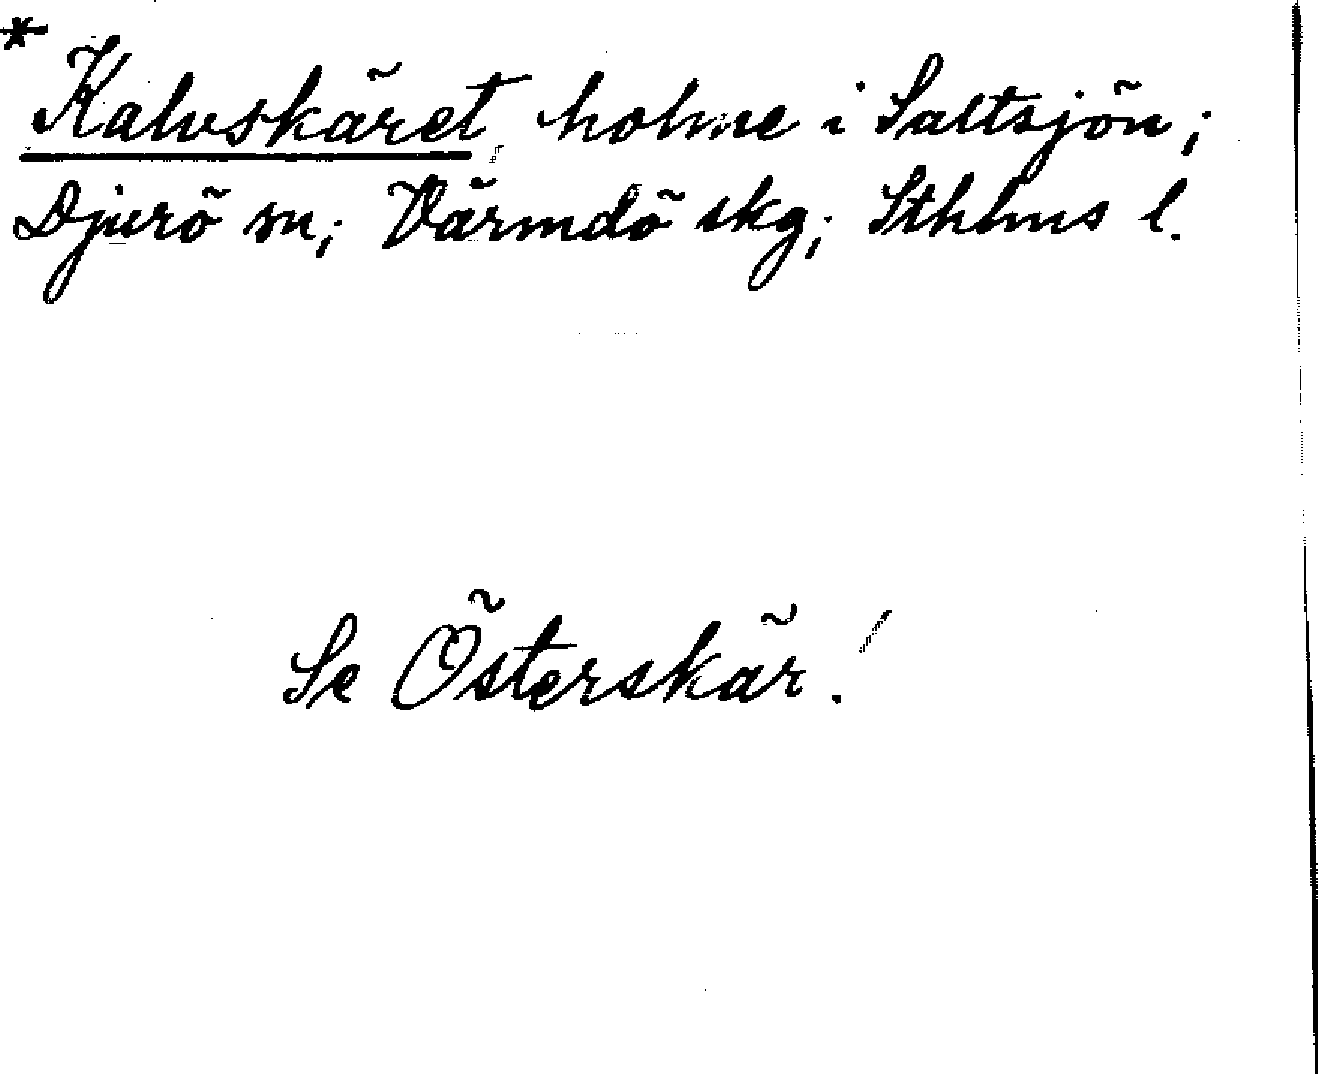 * Kalvskäret, holme i Saltsjön;
Djurö sn; Värmdö skg; Sthlms l.
Se Österskär!